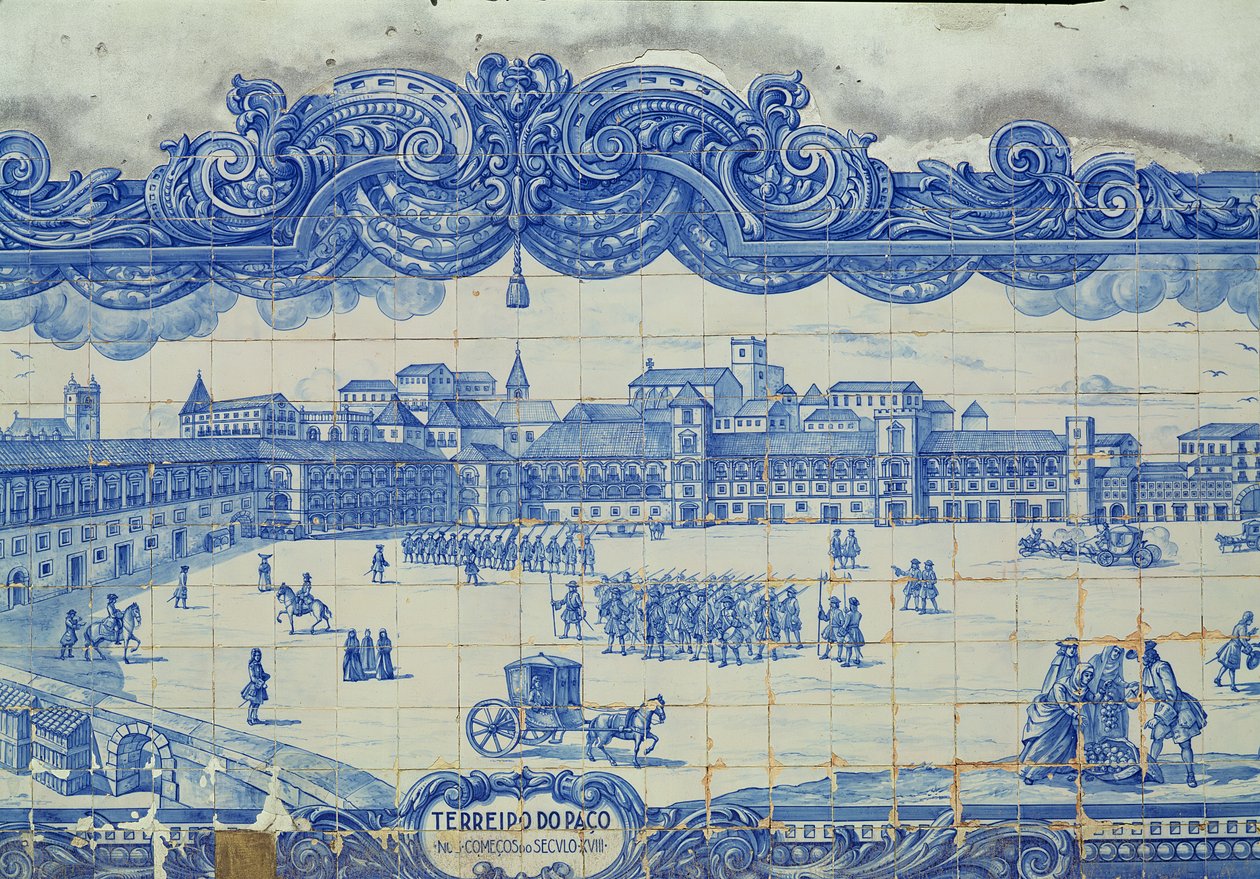 TERREIRO DO PAÇO
NOS·COMEÇOS DO SECVLO·XVIII·